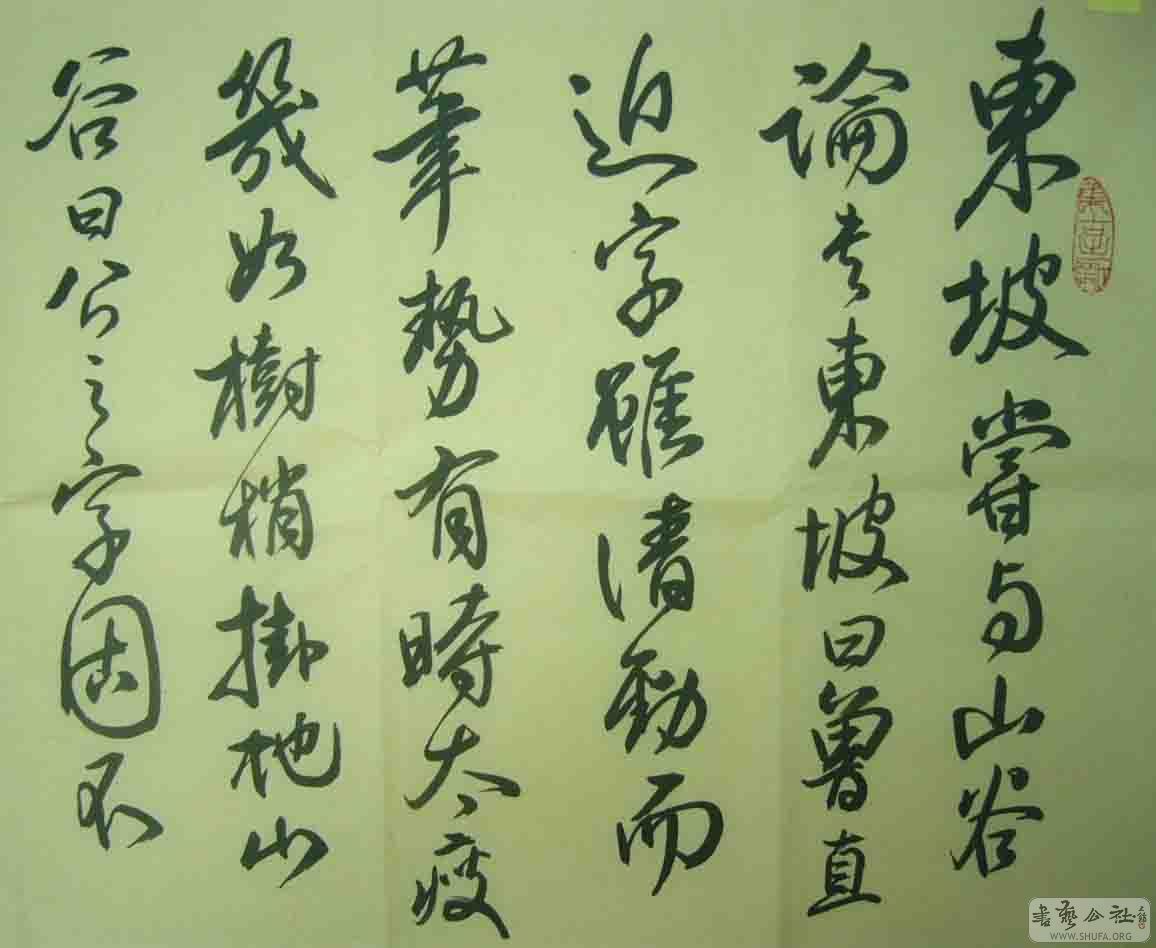 東坡嘗与山谷
論書東坡曰魯直
近字雖清勁而
筆勢有時太瘦
幾如樹梢掛虵山
谷曰公之字固不
書藝公社
WWW.SHUFA.ORG